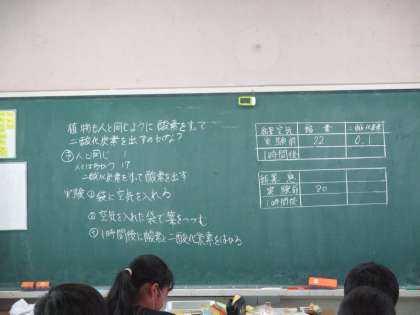 植物も人と同じように酸素をすって
二酸化炭素を出すのかな?
人と同じ
人とはちがう !?
二酸化炭素をすって酸素を出す
実験 ①袋に空気を入れる
②空気を入れた袋で葉をつつむ
③1時間後に酸素と二酸化炭素をはかる
空気 酸素 二酸化炭素
実験前 22 0.1
1時間後
実験前 20
1時間後